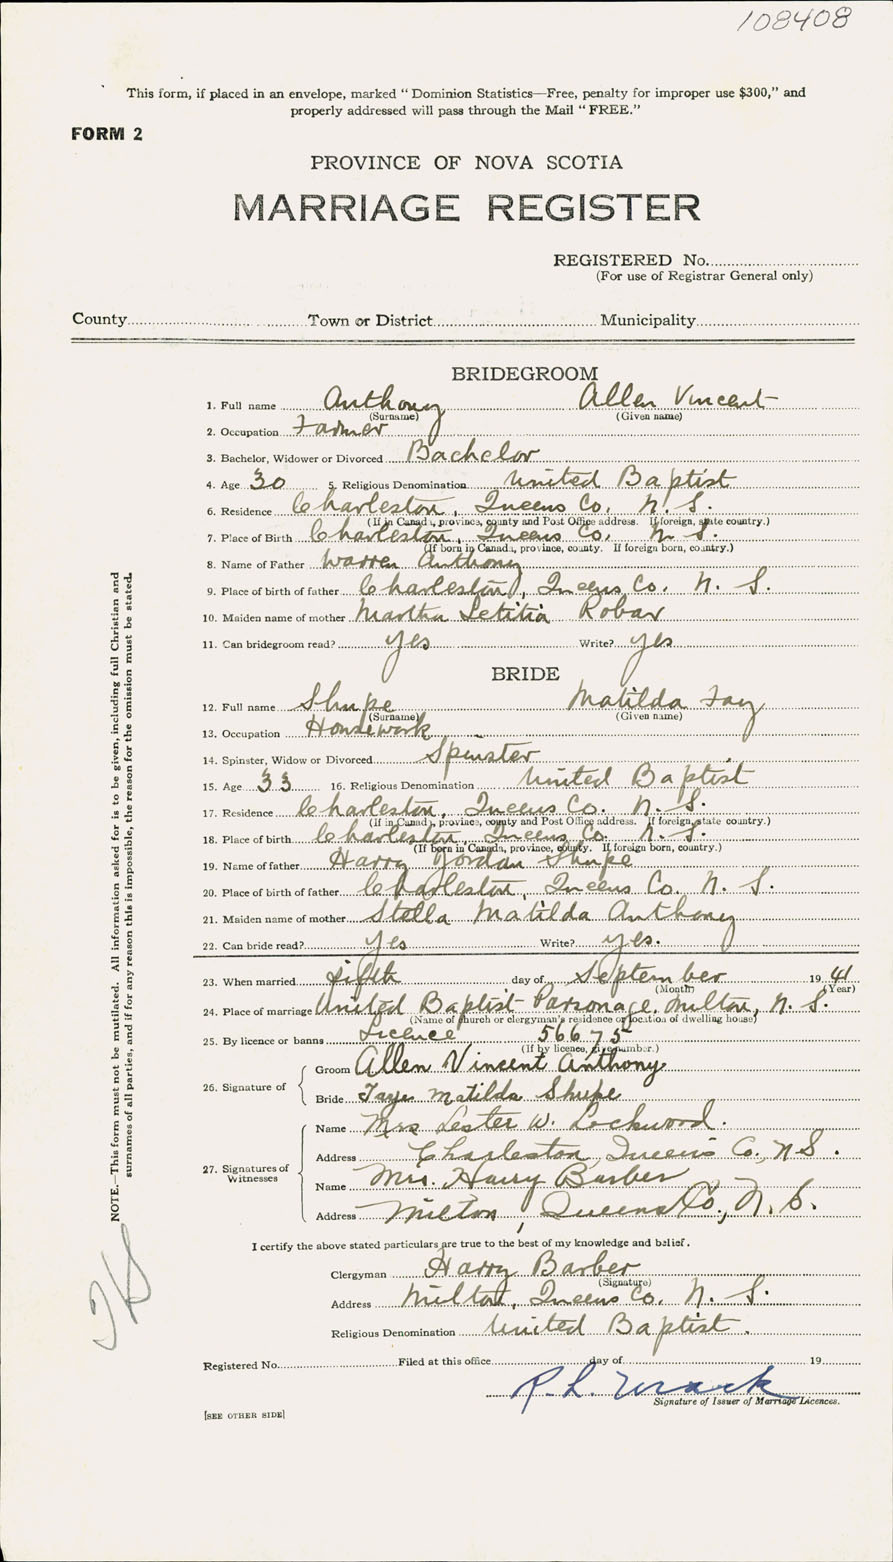 108408
This form, if placed in an envelope, marked “ Dominion Statistics—Free, penalty for improper use $300,” and
properly addressed will pass through the Mail “ FREE.”
FORM 2
PROVINCE OF NOVA SCOTIA
MARRIAGE REGISTER
REGISTERED No.
(For use of Registrar General only)
County Town or District Municipality
BRIDEGROOM
1. Full name Anthony Allen Vincent
(Surname) (Given name)
2. Occupation Farmer
3. Bachelor, Widower or Divorced Bachelor
4. Age 30 5. Religious Denomination United Baptist
6. Residence Charleston, Queens Co, N. S.
(If in Canada, province, county and Post Office address. If foreign, state country.)
7. Place of Birth Charleston, Queens Co, N. S.
(If born in Canada, province, county. If foreign born, country.)
8. Name of Father Warren Anthony
9. Place of birth of father Charleston, Queens Co. N. S.
10. Maiden name of mother Martha Letitia Robar
11. Can bridegroom read? yes Write? yes
BRIDE
12. Full name Shupe Matilda Fay
(Surname) (Given name)
13. Occupation Housework
14. Spinster, Widow or Divorced Spinster
15. Age 33 16. Religious Denomination United Baptist
17. Residence Charleston, Queens Co. N. S.
(If in Canada, province, county and Post Office address. If foreign, state country.)
18. Place of birth Charleston, Queens Co. N. S.
(If born in Canada, province, county. If foreign born, country.)
19. Name of father Harry Jordan Shupe
20. Place of birth of father Charleston, Queens Co. N. S.
21. Maiden name of mother Stella Matilda Anthony
22. Can bride read? yes Write? yes.
23. When married fifth day of September 19 41
(Month) (Year)
24. Place of marriage United Baptist Parsonage, Milton, N. S.
(Name of church or clergyman's residence or location of dwelling house)
25. By licence or banns Licence 56675
(If by licence, give number.)
26. Signature of
Groom Allen Vincent Anthony
Bride Faye Matilda Shupe
27. Signatures of Witnesses
Name Mrs Lester W. Lockwood.
Address Charleston, Queens Co., N.S.
Name Mrs. Harry Barber
Address Milton, Queens Co., N. S.
I certify the above stated particulars are true to the best of my knowledge and belief.
Clergyman Harry Barber
(Signature)
Address Milton, Queens Co. N. S.
Religious Denomination United Baptist.
Registered No. Filed at this office day of 19
R. L.
Signature of Issuer of Marriage Licences.
[SEE OTHER SIDE]
NOTE.—This form must not be mutilated. All information asked for is to be given, including full Christian and
surnames of all parties, and if for any reason this is impossible, the reason for the omission must be stated.